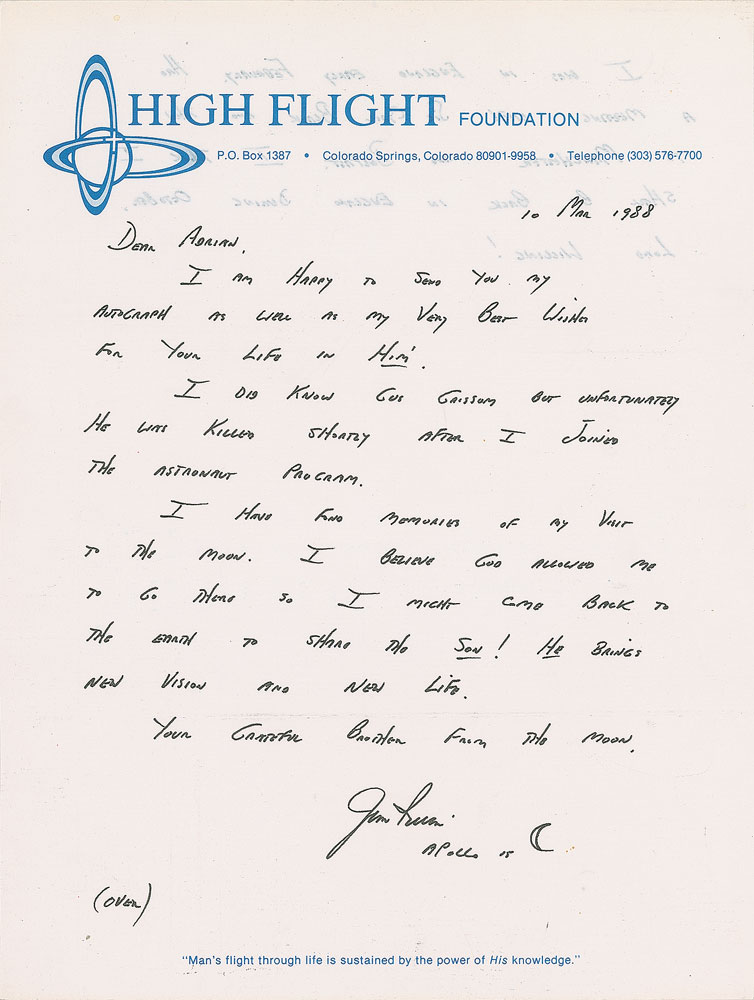 HIGH FLIGHT FOUNDATION
P.O. Box 1387 • Colorado Springs, Colorado 80901-9958 • Telephone (303) 576-7700
10 Mar 1988
Dear Adrian,
I am Happy to Send You my
autograph as well as my Very Best Wishes
For Your Life in Him.
I Did Know Gus Grissom but unfortunately
He was Killed shortly after I Joined
the astronaut Program.
I Have Fond memories of my Visit
to the moon. I Believe God allowed me
to Go there so I might come Back to
the earth to share the Son! He Brings
new Vision and new Life.
Your Grateful Brother From the moon,
Jim Irwin
Apollo 15
(over)
"Man's flight through life is sustained by the power of His knowledge."